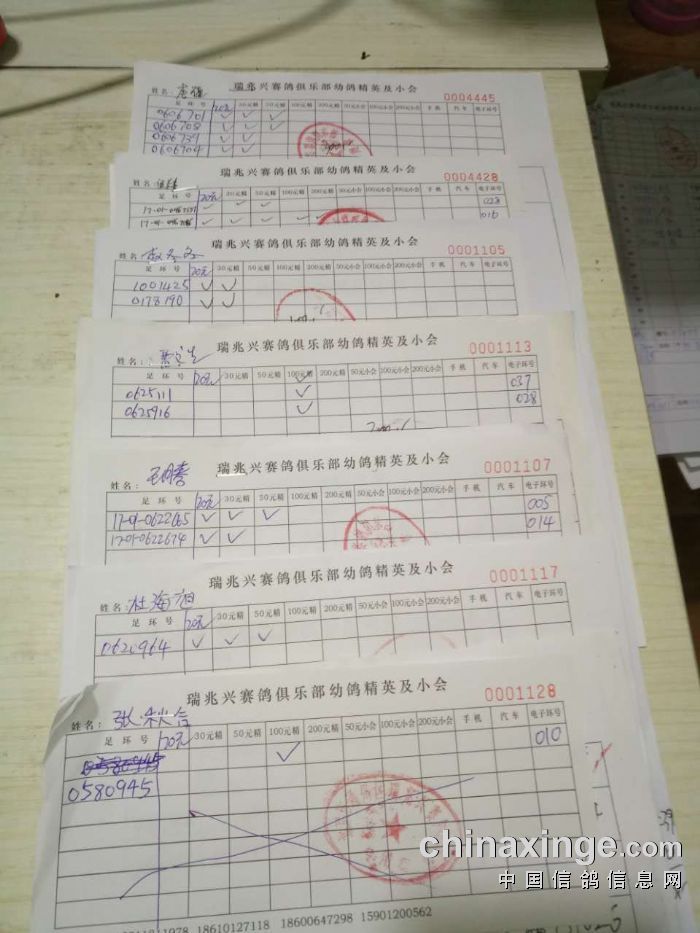 瑞兆兴赛鸽俱乐部幼鸽精英及小会 0004445
姓名:
足环号 20元 30元精 50元精 100元精 200元精 50元小会 100元小会 200元小会 手机 汽车 电子环号
0606701 ✓ ✓ ✓
0606708 ✓ ✓ ✓
0606737 ✓ ✓
0606704 ✓ ✓
瑞兆兴赛鸽俱乐部幼鸽精英及小会 0004428
姓名:
足环号 20元 30元精 50元精 100元精 200元精 50元小会 100元小会 200元小会 手机 汽车 电子环号
028
016
瑞兆兴赛鸽俱乐部幼鸽精英及小会 0001105
姓名:
足环号 20元 30元精 50元精 100元精 200元精 50元小会 100元小会 200元小会 手机 汽车 电子环号
1001425 ✓ ✓
0178190 ✓ ✓
瑞兆兴赛鸽俱乐部幼鸽精英及小会 0001113
姓名:
足环号 20元 30元精 50元精 100元精 200元精 50元小会 100元小会 200元小会 手机 汽车 电子环号
0625111 ✓ 037
0625916 ✓ 028
瑞兆兴赛鸽俱乐部幼鸽精英及小会 0001107
姓名:
足环号 20元 30元精 50元精 100元精 200元精 50元小会 100元小会 200元小会 手机 汽车 电子环号
17-01-0622665 ✓ ✓ ✓ 005
17-01-0622674 ✓ ✓ 014
瑞兆兴赛鸽俱乐部幼鸽精英及小会 0001117
姓名: 杜海旭
足环号 20元 30元精 50元精 100元精 200元精 50元小会 100元小会 200元小会 手机 汽车 电子环号
0620964 ✓ ✓ ✓
瑞兆兴赛鸽俱乐部幼鸽精英及小会 0001128
姓名: 张秋合
足环号 20元 30元精 50元精 100元精 200元精 50元小会 100元小会 200元小会 手机 汽车 电子环号
0580945 ✓ 010
0580945
18610127118 18600647298 15901200562
chinaxinge.com
中国信鸽信息网